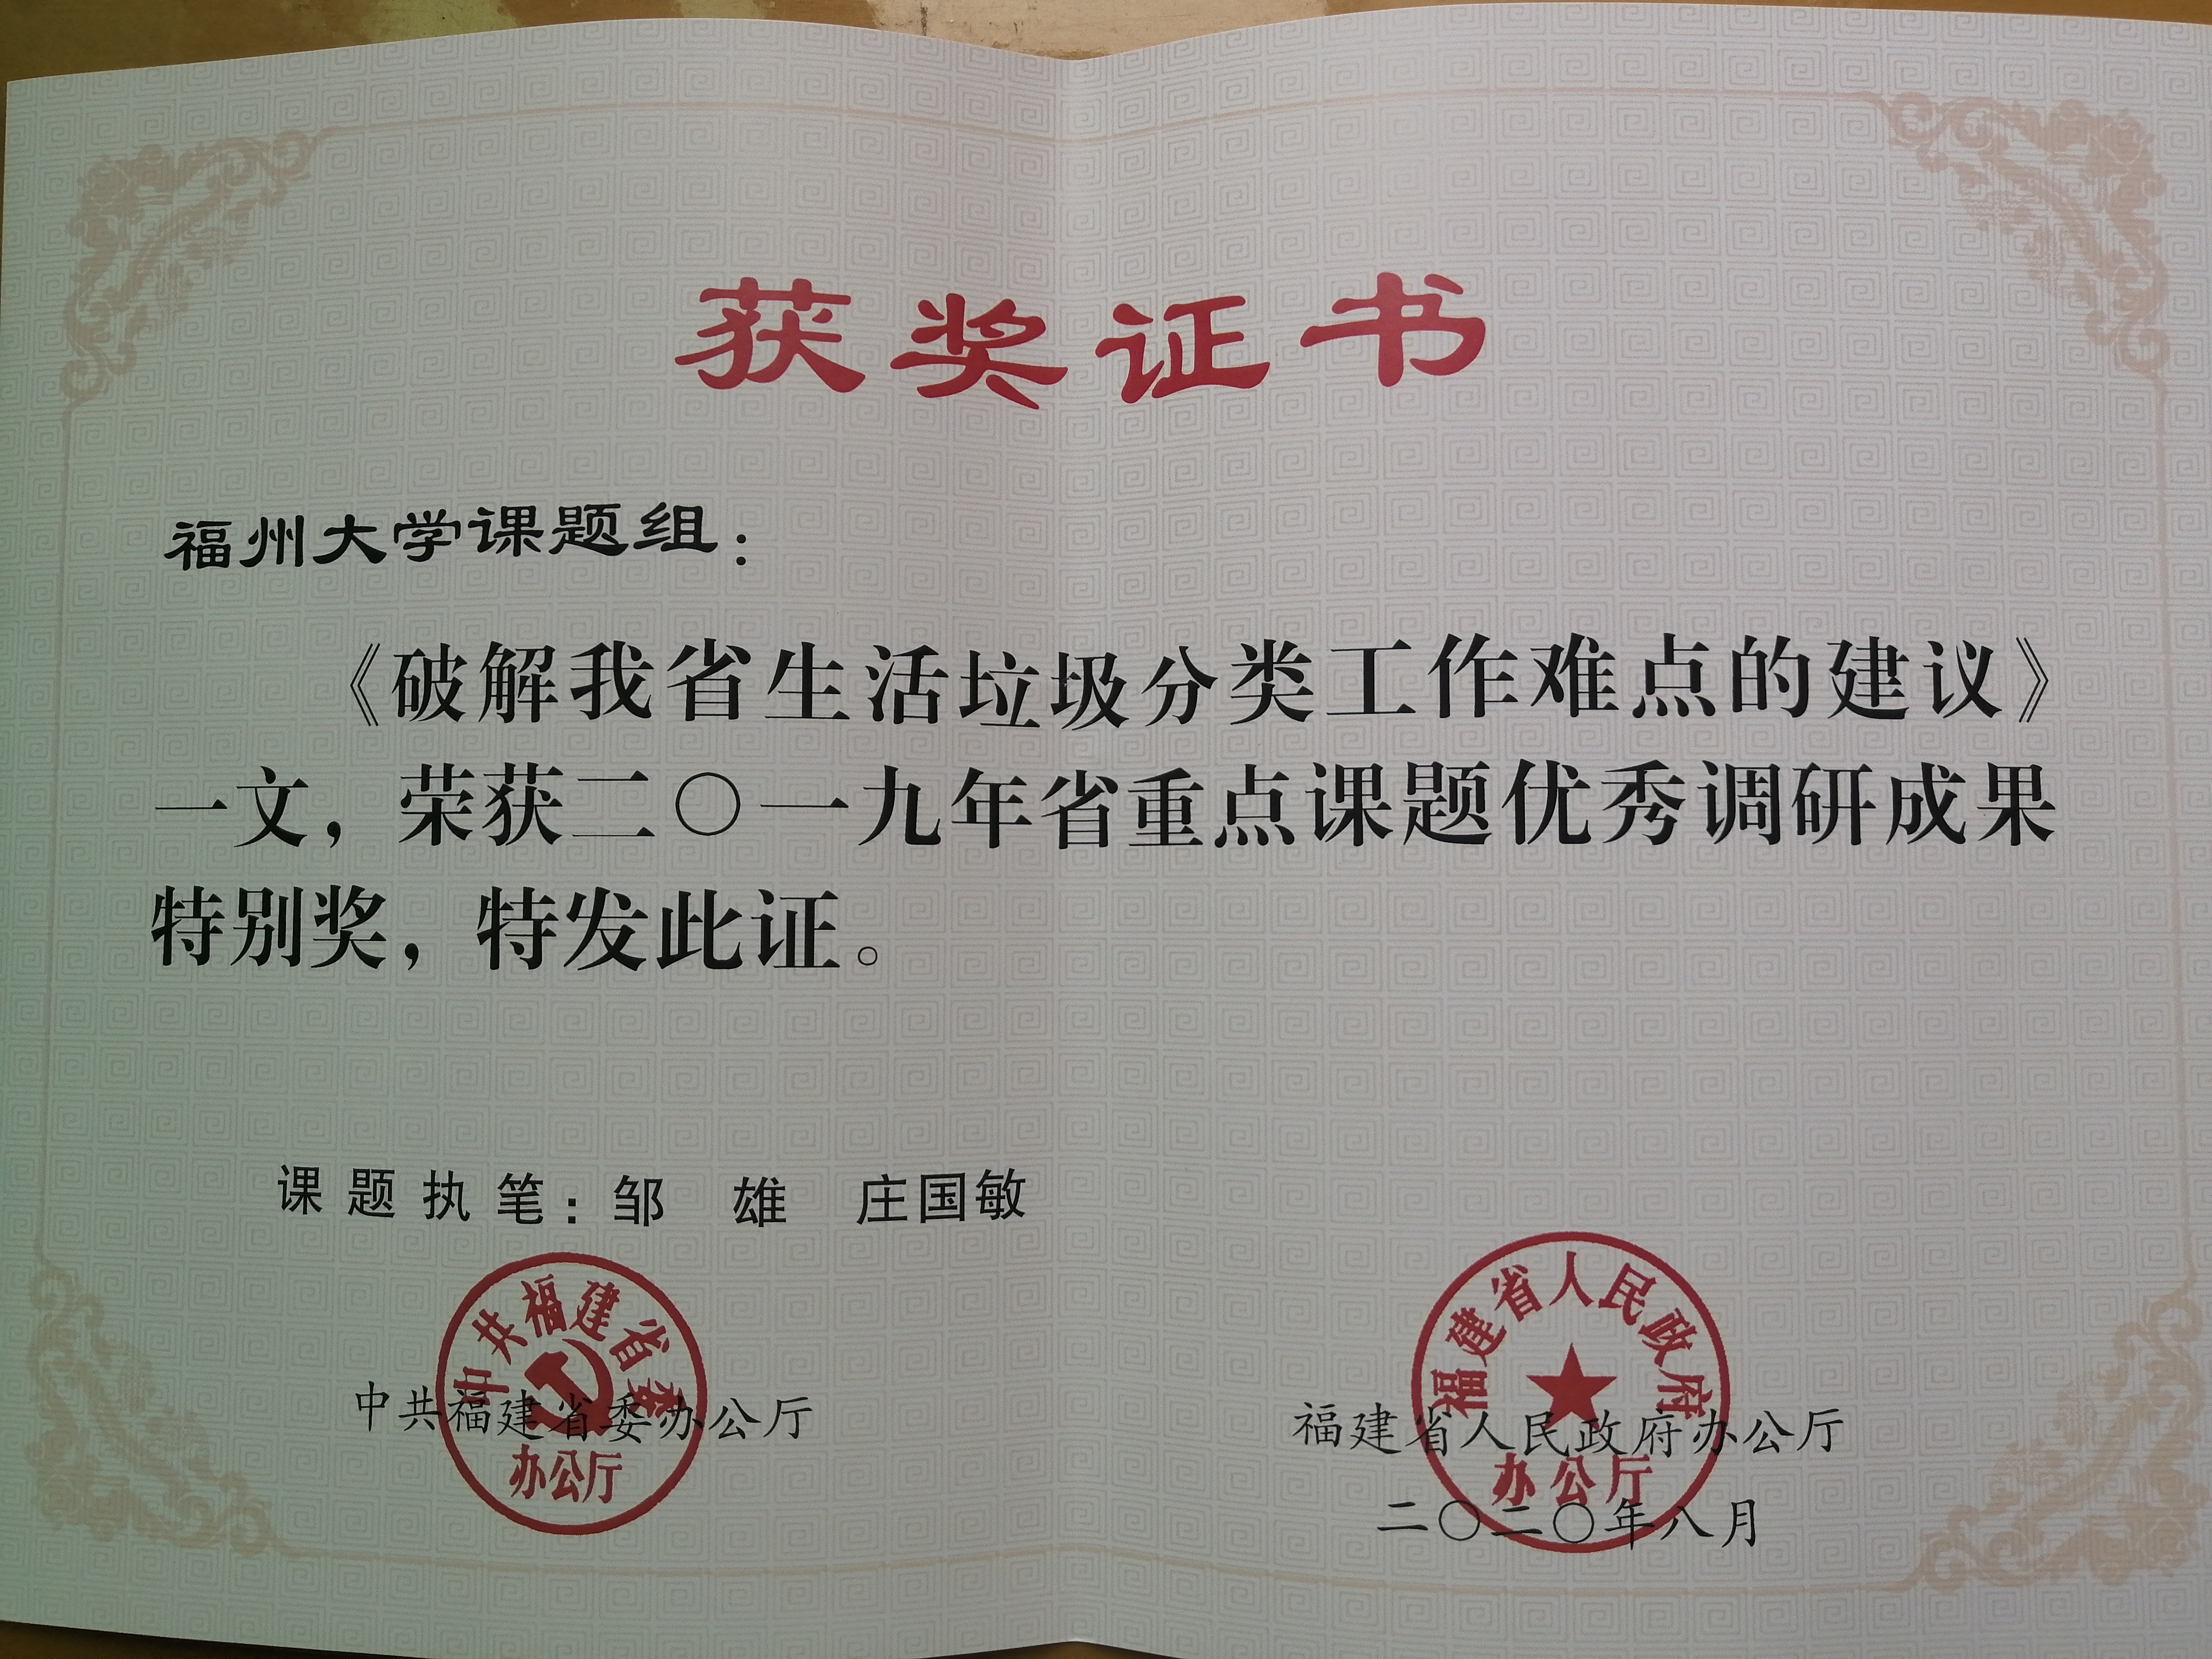 获奖证书
福州大学课题组：
《破解我省生活垃圾分类工作难点的建议》
一文，荣获二〇一九年省重点课题优秀调研成果
特别奖，特发此证。
课题执笔：邹 雄 庄国敏
中共福建省委
办公厅
中共福建省委办公厅
福建省人民政府
办公厅
福建省人民政府办公厅
二〇二〇年八月